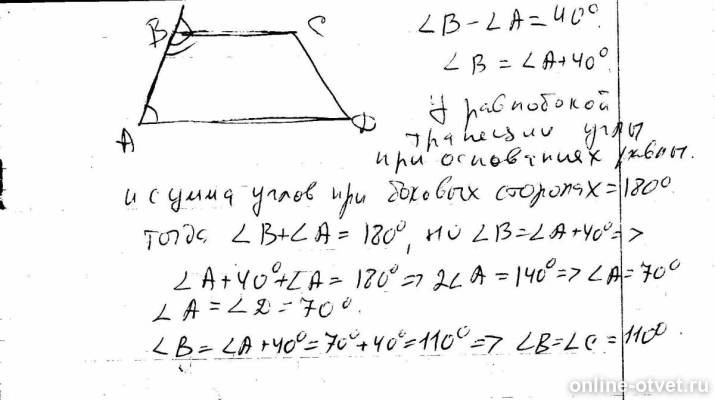 B C
A D
∠B - ∠A = 40°.
∠B = ∠A+40°.
У равнобокой
трапеции углы
при основаниях равны.
и сумма углов при боковых сторонах = 180°
Тогда ∠B+∠A = 180°, но ∠B=∠A+40° =>
∠A+40°+∠A = 180° => 2∠A = 140° => ∠A = 70°
∠A = ∠D = 70°.
∠B = ∠A+40° = 70°+40° = 110° => ∠B=∠C = 110°.
online-otvet.ru